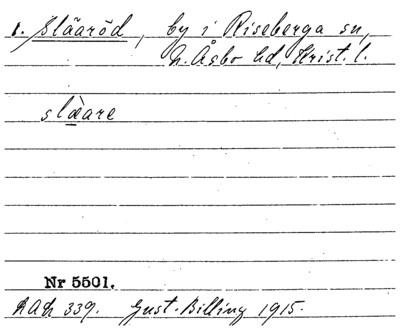 1. Slääröd, by i Riseberga sn,
N. Åsbo hd, Krist. l.
slæ̀are
Nr 5501.
RAh 339. Gust. Billing 1915.